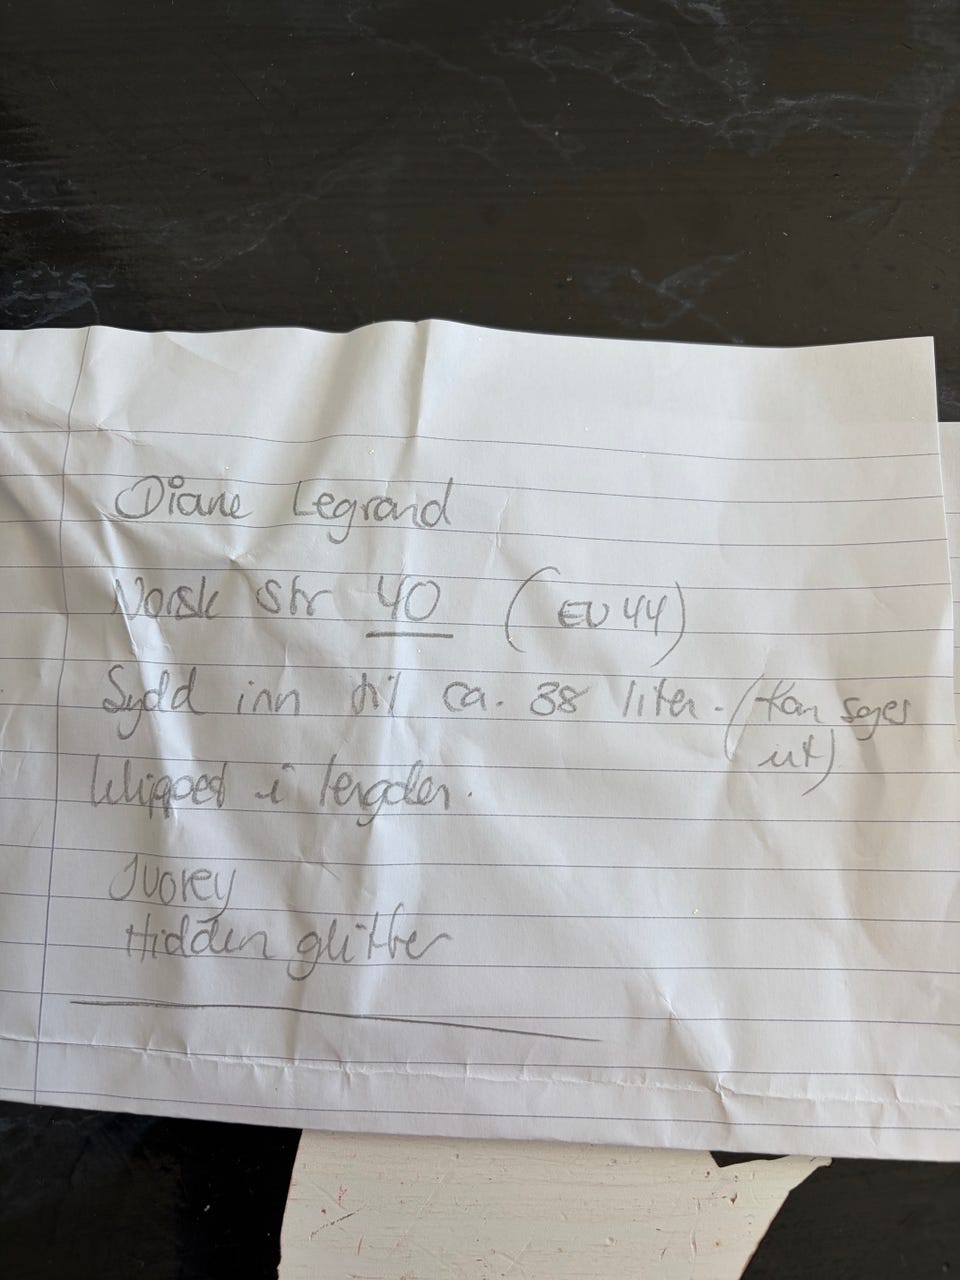 Diane Legrand
Norsk str 40 (EU 44)
Sydd inn til ca. 38 liten. (Kan syes
ut)
Klippet i lengden.
Ivorey
Hidden glitter